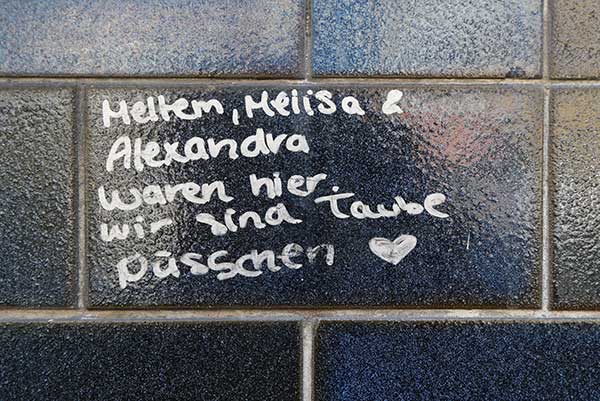 Meltem, Melisa &
Alexandra
waren hier.
wir sind Taube
pässchen